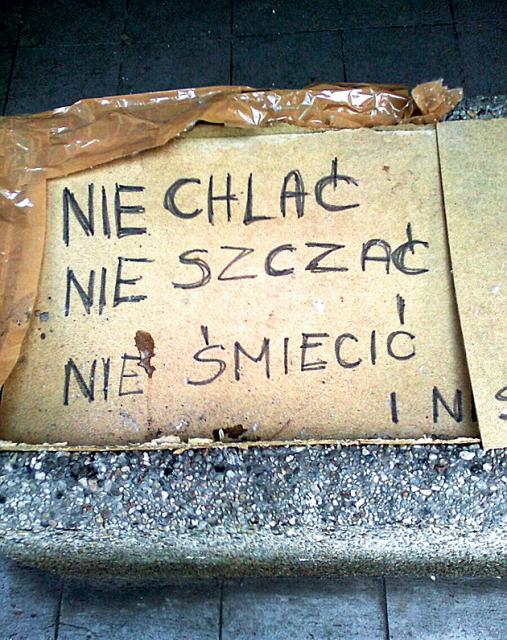 NIE CHLAĆ
NIE SZCZAĆ
NIE ŚMIECIĆ
I NIS